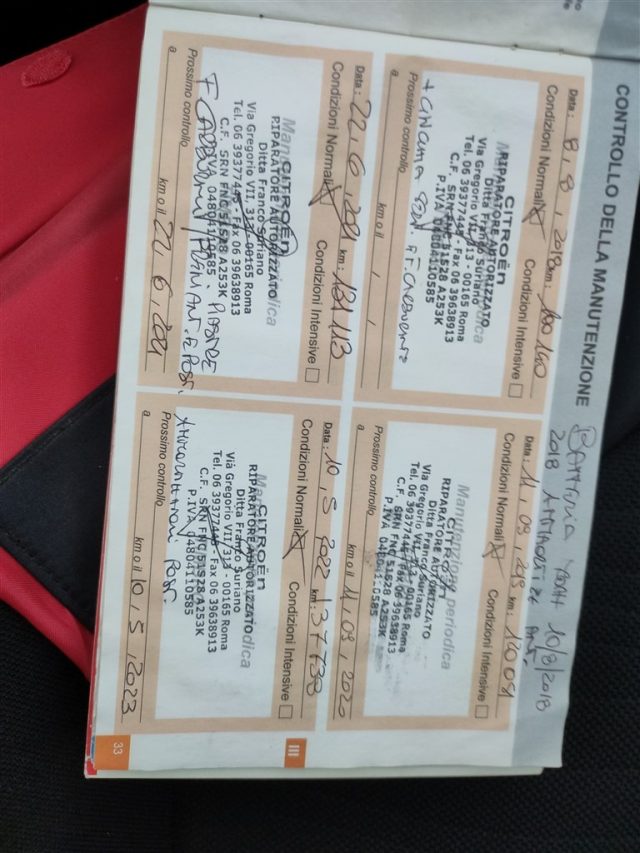 CONTROLLO DELLA MANUTENZIONE
BATTERIA 10/8/2018
2018
Data: 8, 8, 2018 km: 100140
Condizioni Normali X Condizioni Intensive
Manutenzione periodica
CITROËN
RIPARATORE AUTORIZZATO
Ditta Franco Suriano
Via Gregorio VII, 313 - 00165 Roma
Tel. 06 39377445 - Fax 06 39638913
C.F. SRN FNC 51S28 A253K
P.IVA 04804110585
Prossimo controllo
a km o il , ,
Data: 11, 09, 2019 km:
Condizioni Normali X Condizioni Intensive
Manutenzione periodica
CITROËN
RIPARATORE AUTORIZZATO
Ditta Franco Suriano
Via Gregorio VII, 313 - 00165 Roma
Tel. 06 39377445 - Fax 06 39638913
C.F. SRN FNC 51S28 A253K
P.IVA 04804110585
Prossimo controllo
a km o il 11, 09, 2020
Data: 22, 6, 2021 km: 131113
Condizioni Normali X Condizioni Intensive
Manutenzione periodica
CITROËN
RIPARATORE AUTORIZZATO
Ditta Franco Suriano
Via Gregorio VII, 313 - 00165 Roma
Tel. 06 39377445 - Fax 06 39638913
C.F. SRN FNC 51S28 A253K
P.IVA 04804110585
Prossimo controllo
a km o il 22, 6, 2021
Data: 10, 5, 2022 km: 137738
Condizioni Normali X Condizioni Intensive
Manutenzione periodica
CITROËN
RIPARATORE AUTORIZZATO
Ditta Franco Suriano
Via Gregorio VII, 313 - 00165 Roma
Tel. 06 39377445 - Fax 06 39638913
C.F. SRN FNC 51S28 A253K
P.IVA 04804110585
Prossimo controllo
AMMORTIZZATORI POST.
a km o il 10, 5, 2023
III
33